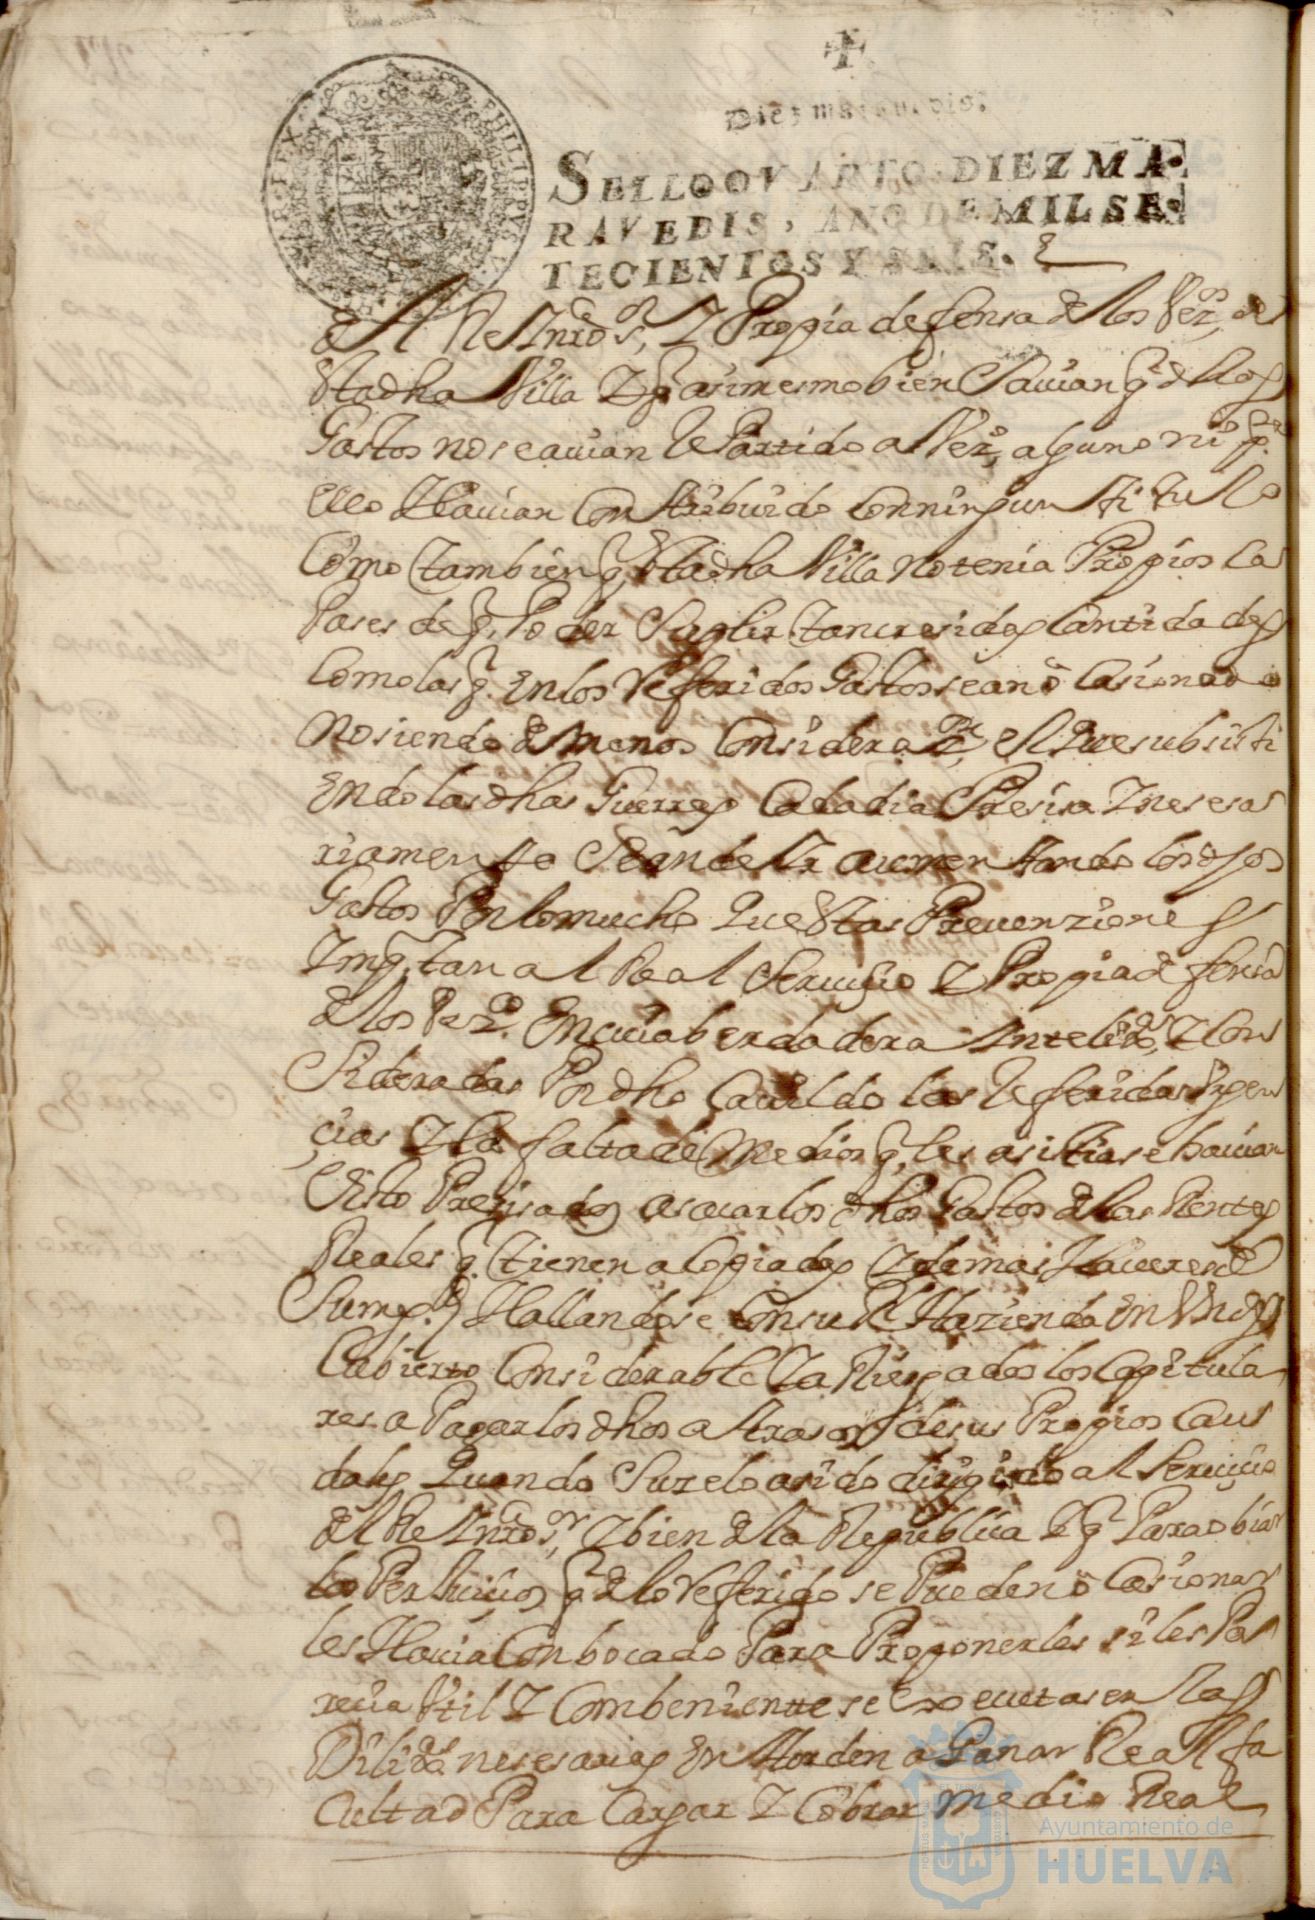 Diez marauedis.
SELLO QVARTO. DIEZ MA-
RAVEDIS, AÑO DE MIL SE-
TECIENTOS Y SEIS.
PHILIPPVS V
REX
el Rl Ynro sr, Y Propia defensa de los Vezos, de
Vtadha Villa Y q asimesmo bien Sauian q dellos
Gastos no se auian Repartido a Vezo, alguno ni pa
ello Hauian Contribuido Con ningun Titulo
Como tambien q Vtadha Villa no tenia Propios Ca
Pases de q, Poder Suplir tan cresidas Cantidades
Como las q. En los Referidos Gastos se an oCasionado
no siendo de menos Considera, el que subsisti
Endo las dhas Guerras Cada dia Presisa Y neseSa
riamente Se an de Yr aumentando los dhos
Gastos Por lo mucho Que Vtas Preuenziones
Ymptan al Real Seruisio Y Propia defensa
de los Vezos. En cuia berdadera Ynteliga, Y Con
Sideradas Por dho Cauildo las Referidas Vrgen
cias Y la falta de Medios q, les asistia se hauian
Visto Presisados a sacar los dhos Gastos de las Rentas
Reales q. tienen a Copiadas Y demas Haueres de
Su Magd. Hallandose Con su Rl Hazienda En Vn des
Cubierto Considerable Y a Riesgados los Capitula
res a Pagar los dhos atrasos de sus Propios Cau
dales Quando Su zelo a sido dirigido al Seruicio
del Rl Ynro sr, Y bien de la Republica Y q Para obiar
los Perjuicios q de lo Referido se Pueden oCasionar
les Hauia Conbocado Para Proponerles si les Pa
recia Vtil Y Combeniente se executasen las
Diligas nesesarias En Horden a Ganar Real fa
Cultad Para Cargar Y Cobrar medio Real
Ayuntamiento de
HUELVA